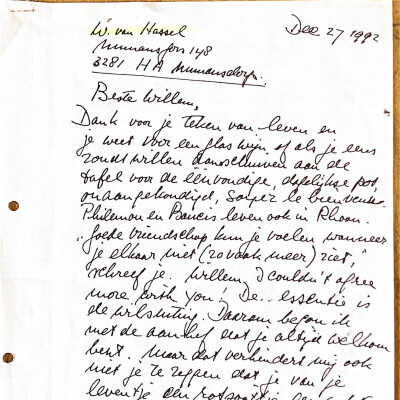 W. van Hassel
Dec 27 1992
Numansgors 148
3281 HA Numansdorp.
Beste Willem,
Dank voor je teken van leven en
je weet voor een glas wijn of als je eens
zoudt willen aanschuiven aan de
tafel voor de éénvoudige, dagelijkse pot,
onaangekondigd, Soyez le bienvenu.
Philemon en Baucis leven ook in Rhoon.
"Goede vriendschap kun je voelen, wanneer
je elkaar niet (zo vaak meer) ziet,"
schreef je. Willem, I couldn't agree
more with you! De.. essentie is
de wilsuiting. Daarom begon ik
met de aanhef dat je altijd welkom
bent. Maar dat verhindert mij ook
niet je te zeggen dat je van je
leventje één